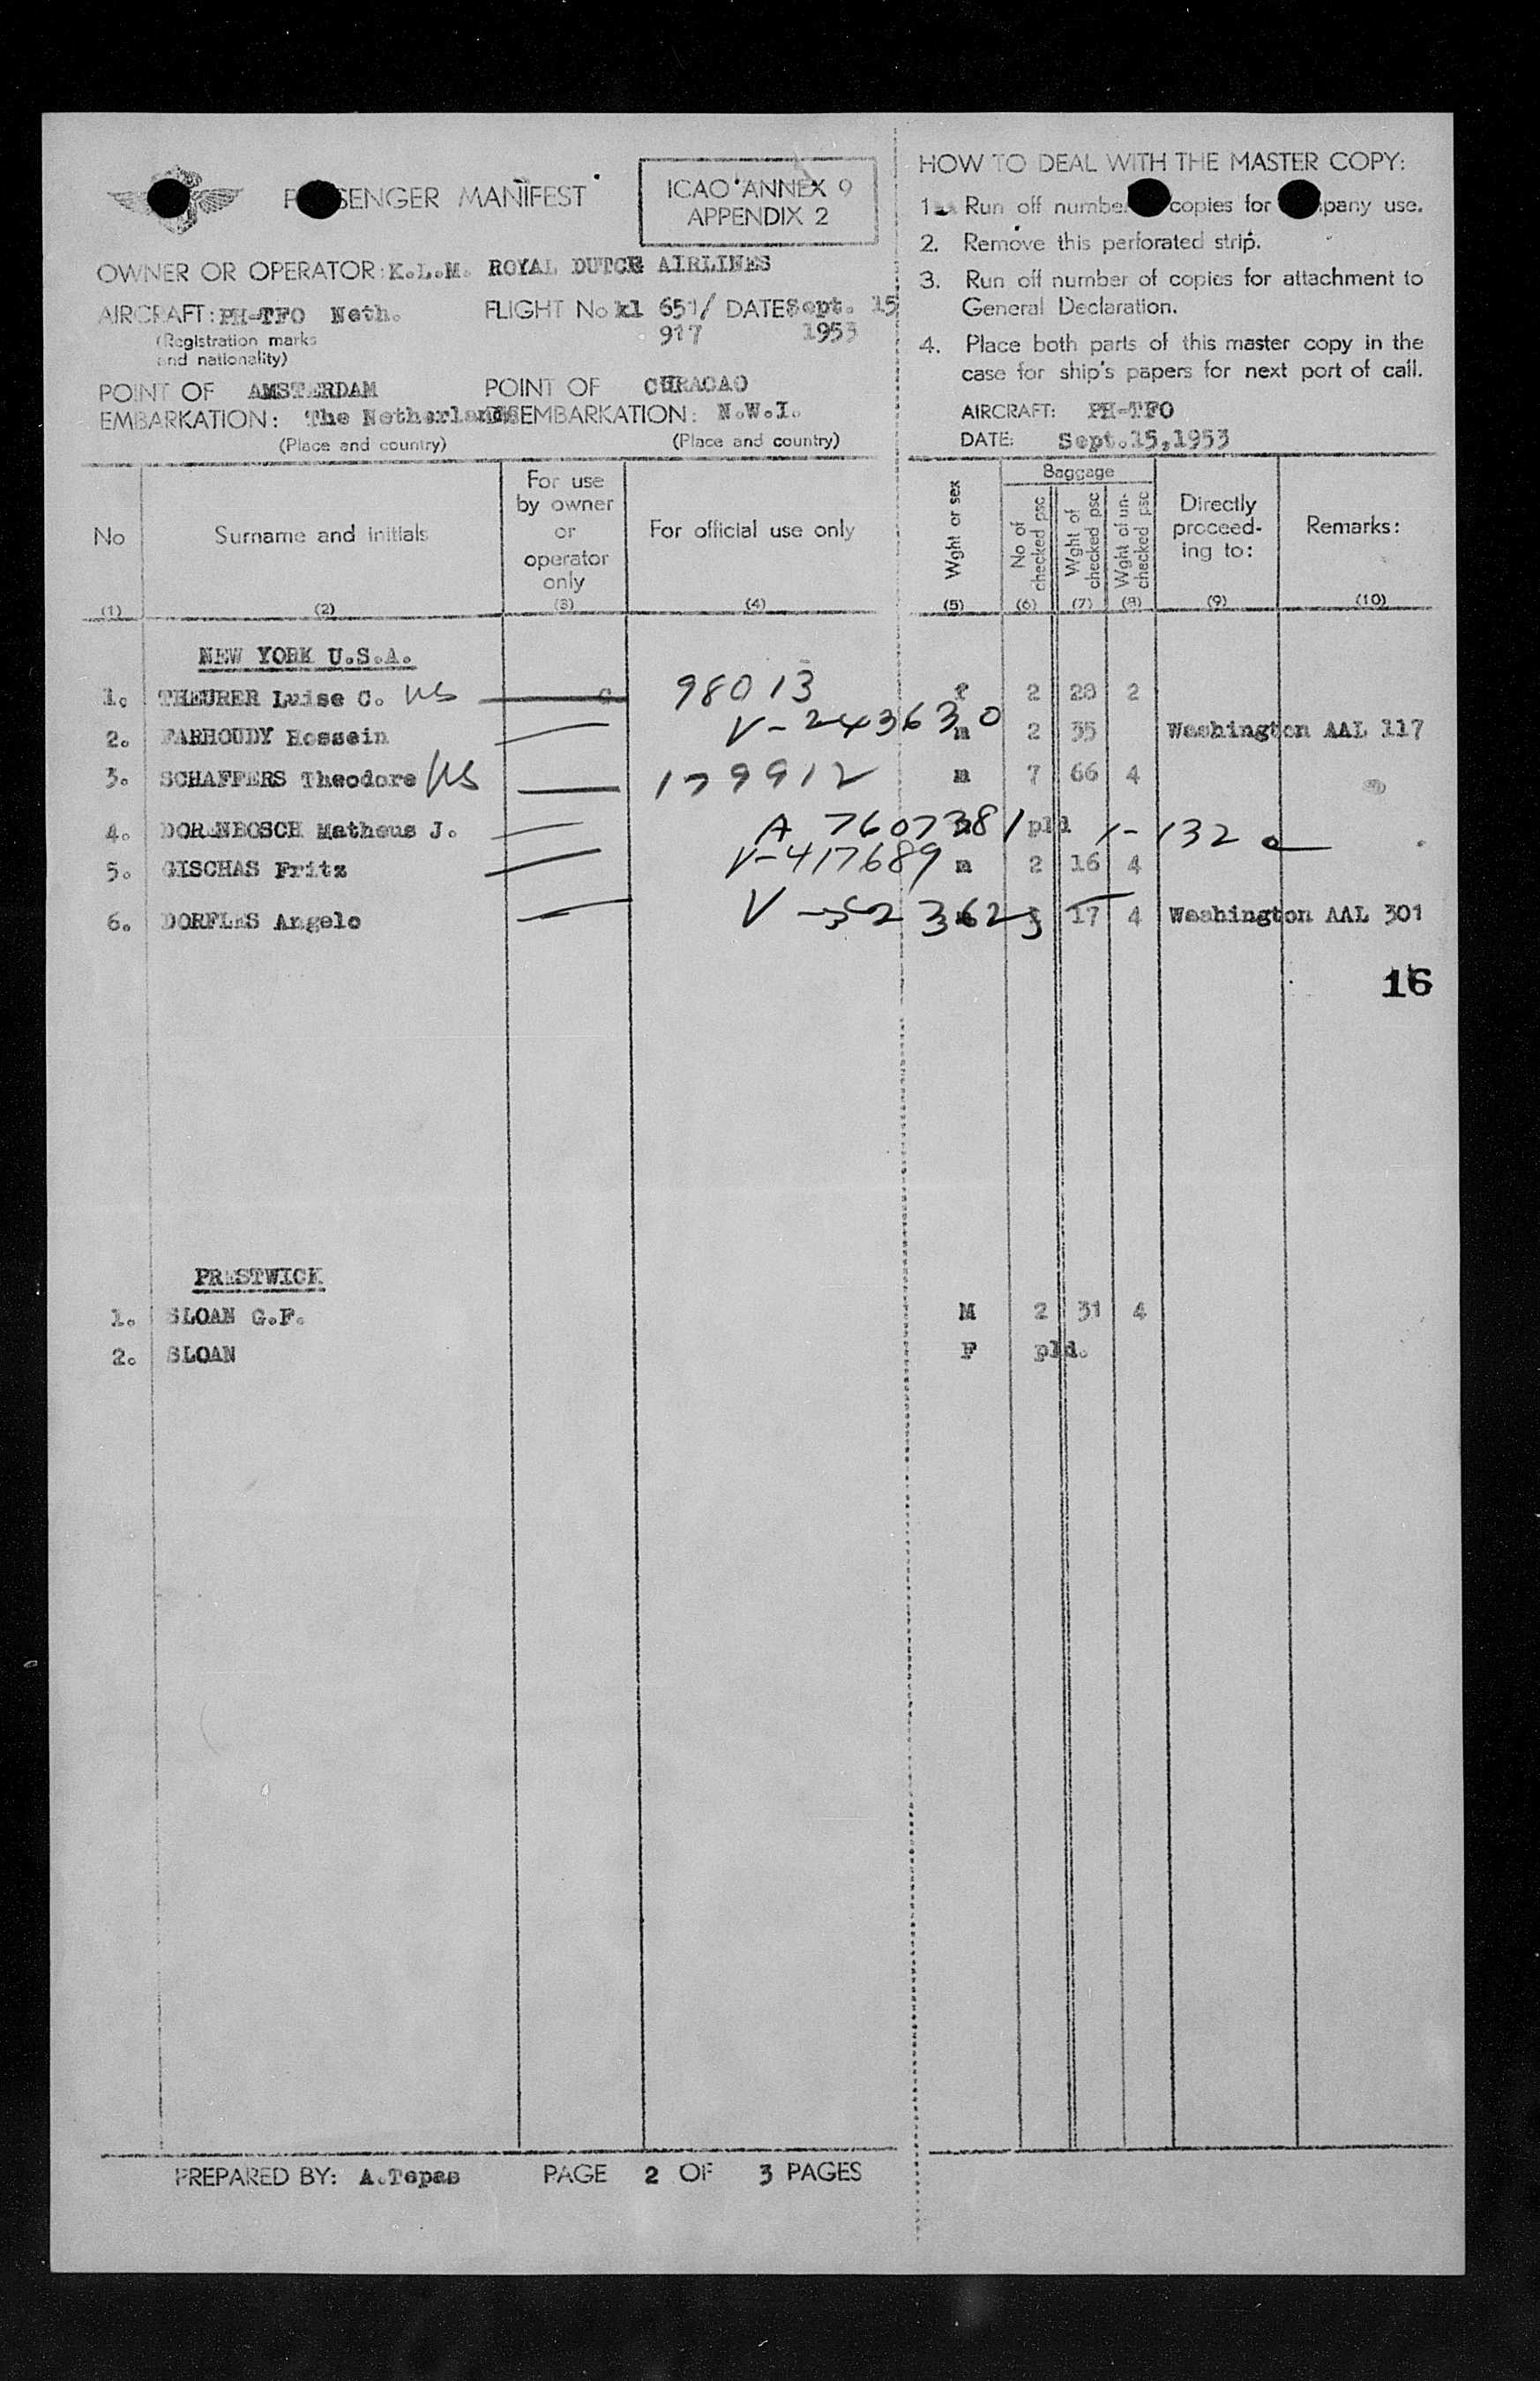 PASSENGER MANIFEST
ICAO ANNEX 9
APPENDIX 2
OWNER OR OPERATOR: K.L.M. ROYAL DUTCH AIRLINES
AIRCRAFT: PH-TFO Neth. FLIGHT No kl 651/ DATE Sept. 15
(Registration marks 917 1953
and nationality)
POINT OF AMSTERDAM POINT OF CURACAO
EMBARKATION: The Netherlands DISEMBARKATION: N.W.I.
(Place and country) (Place and country)
HOW TO DEAL WITH THE MASTER COPY:
1. Run off number copies for company use.
2. Remove this perforated strip.
3. Run off number of copies for attachment to
General Declaration.
4. Place both parts of this master copy in the
case for ship's papers for next port of call.
AIRCRAFT: PH-TFO
DATE: Sept.15,1953
No
Surname and initials
For use
by owner
or
operator
only
For official use only
Wght or sex
Baggage
No of
checked psc
Wght of
checked psc
Wght of un-
checked psc
Directly
proceed-
ing to:
Remarks:
(1) (2) (3) (4) (5) (6) (7) (8) (9) (10)
NEW YORK U.S.A.
1. THEURER Luise C. US 98013 f 2 20 2
2. FARHOUDY Hossein V-243630 m 2 35 Washington AAL 117
3. SCHAFFERS Theodore US 179912 m 7 66 4
4. DORENBOSCH Matheus J. A 7607381 pld 1-132
5. GISCHAS Fritz V-417689 m 2 16 4
6. DORFLES Angelo V-523625 17 4 Washington AAL 301
16
PRESTWICK
1. SLOAN G.F. M 2 31 4
2. SLOAN F pld.
PREPARED BY: A.Tepas PAGE 2 OF 3 PAGES